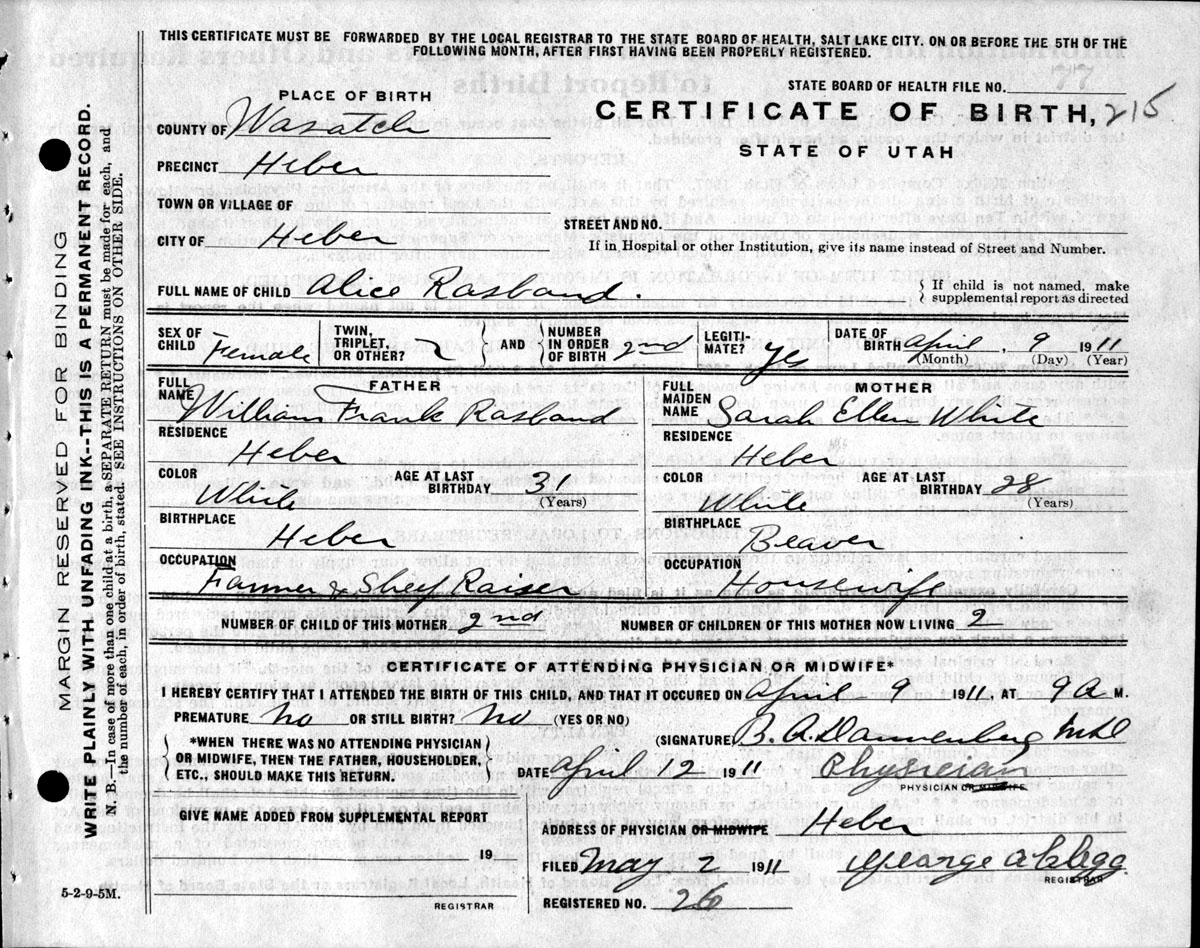 THIS CERTIFICATE MUST BE FORWARDED BY THE LOCAL REGISTRAR TO THE STATE BOARD OF HEALTH, SALT LAKE CITY. ON OR BEFORE THE 5TH OF THE
FOLLOWING MONTH, AFTER FIRST HAVING BEEN PROPERLY REGISTERED.
77
STATE BOARD OF HEALTH FILE NO.
PLACE OF BIRTH
CERTIFICATE OF BIRTH, 215
COUNTY OF Wasatch
STATE OF UTAH
PRECINCT Heber
TOWN OR VILLAGE OF
STREET AND NO.
CITY OF Heber
If in Hospital or other Institution, give its name instead of Street and Number.
FULL NAME OF CHILD Alice Rasband. { If child is not named, make
supplemental report as directed
SEX OF CHILD Female TWIN, TRIPLET, OR OTHER? AND { NUMBER IN ORDER OF BIRTH 2nd LEGITI-MATE? yes DATE OF BIRTH April 9 1911
(Month) (Day) (Year)
FATHER MOTHER
FULL NAME William Frank Rasband FULL MAIDEN NAME Sarah Ellen White
RESIDENCE Heber RESIDENCE Heber
COLOR White AGE AT LAST BIRTHDAY 31 (Years) COLOR White AGE AT LAST BIRTHDAY 28 (Years)
BIRTHPLACE Heber BIRTHPLACE Beaver
OCCUPATION Farmer & Sheep Raiser OCCUPATION Housewife
NUMBER OF CHILD OF THIS MOTHER 2nd NUMBER OF CHILDREN OF THIS MOTHER NOW LIVING 2
CERTIFICATE OF ATTENDING PHYSICIAN OR MIDWIFE*
I HEREBY CERTIFY THAT I ATTENDED THE BIRTH OF THIS CHILD, AND THAT IT OCCURED ON April 9 1911, AT 9 A M.
PREMATURE No OR STILL BIRTH? No (YES OR NO)
{ *WHEN THERE WAS NO ATTENDING PHYSICIAN
OR MIDWIFE, THEN THE FATHER, HOUSEHOLDER,
ETC., SHOULD MAKE THIS RETURN. }
(SIGNATURE) B. A. Dannenberg
DATE April 12 1911 Physician
PHYSICIAN OR MIDWIFE
GIVE NAME ADDED FROM SUPPLEMENTAL REPORT
19
REGISTRAR
ADDRESS OF PHYSICIAN OR MIDWIFE Heber
FILED May 2 1911 George A Clegg
REGISTRAR
REGISTERED NO. 26
5-2-9-5M.
MARGIN RESERVED FOR BINDING
WRITE PLAINLY WITH UNFADING INK--THIS IS A PERMANENT RECORD.
N. B.—In case of more than one child at a birth, a SEPARATE RETURN must be made for each, and
the number of each, in order of birth, stated. SEE INSTRUCTIONS ON OTHER SIDE.